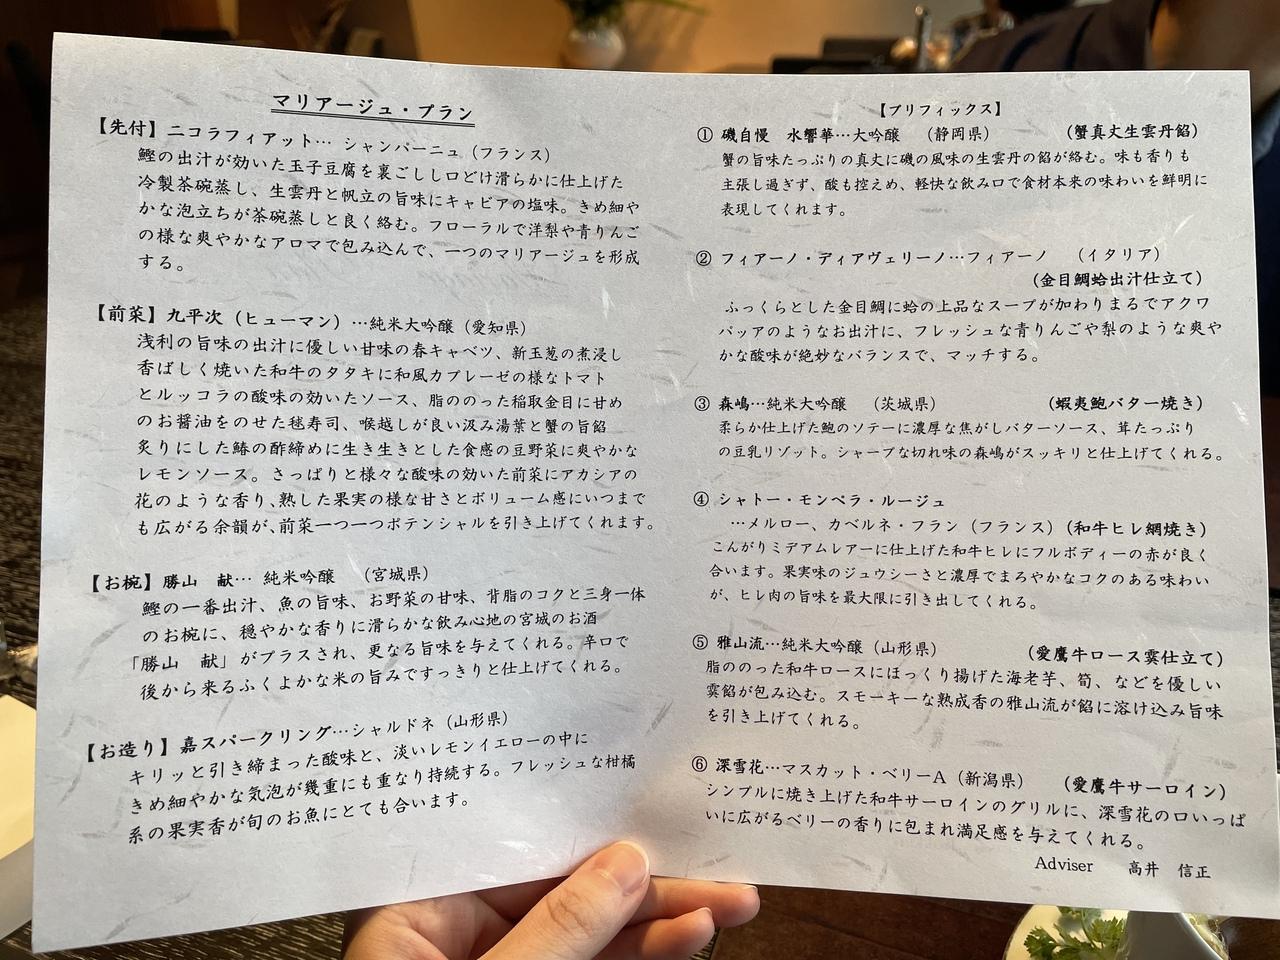 マリアージュ・プラン
【先付】ニコラフィアット… シャンパーニュ（フランス）
鰹の出汁が効いた玉子豆腐を裏ごしし口どけ滑らかに仕上げた
冷製茶碗蒸し、生雲丹と帆立の旨味にキャビアの塩味。きめ細や
かな泡立ちが茶碗蒸しと良く絡む。フローラルで洋梨や青りんご
の様な爽やかなアロマで包み込んで、一つのマリアージュを形成
する。
【前菜】九平次（ヒューマン）…純米大吟醸（愛知県）
浅利の旨味の出汁に優しい甘味の春キャベツ、新玉葱の煮浸し
香ばしく焼いた和牛のタタキに和風カプレーゼの様なトマト
とルッコラの酸味の効いたソース、脂ののった稲取金目に甘め
のお醤油をのせた毬寿司、喉越しが良い汲み湯葉と蟹の旨餡
炙りにした鰆の酢締めに生き生きとした食感の豆野菜に爽やかな
レモンソース。さっぱりと様々な酸味の効いた前菜にアカシアの
花のような香り、熟した果実の様な甘さとボリューム感にいつまで
も広がる余韻が、前菜一つ一つポテンシャルを引き上げてくれます。
【お椀】勝山　献… 純米吟醸　（宮城県）
鰹の一番出汁、魚の旨味、お野菜の甘味、背脂のコクと三身一体
のお椀に、穏やかな香りに滑らかな飲み心地の宮城のお酒
「勝山　献」がプラスされ、更なる旨味を与えてくれる。辛口で
後から来るふくよかな米の旨みですっきりと仕上げてくれる。
【お造り】嘉スパークリング…シャルドネ（山形県）
キリッと引き締まった酸味と、淡いレモンイエローの中に
きめ細やかな気泡が幾重にも重なり持続する。フレッシュな柑橘
系の果実香が旬のお魚にとても合います。
【プリフィックス】
① 磯自慢　水響華…大吟醸　（静岡県）　（蟹真丈生雲丹餡）
蟹の旨味たっぷりの真丈に磯の風味の生雲丹の餡が絡む。味も香りも
主張し過ぎず、酸も控えめ、軽快な飲み口で食材本来の味わいを鮮明に
表現してくれます。
② フィアーノ・ディアヴェリーノ…フィアーノ　（イタリア）
（金目鯛蛤出汁仕立て）
ふっくらとした金目鯛に蛤の上品なスープが加わりまるでアクワ
パッアのようなお出汁に、フレッシュな青りんごや梨のような爽や
かな酸味が絶妙なバランスで、マッチする。
③ 森嶋…純米大吟醸　（茨城県）　（蝦夷鮑バター焼き）
柔らか仕上げた鮑のソテーに濃厚な焦がしバターソース、茸たっぷり
の豆乳リゾット。シャープな切れ味の森嶋がスッキリと仕上げてくれる。
④ シャトー・モンペラ・ルージュ
…メルロー、カベルネ・フラン（フランス）（和牛ヒレ網焼き）
こんがりミデアムレアーに仕上げた和牛ヒレにフルボディーの赤が良く
合います。果実味のジュウシーさと濃厚でまろやかなコクのある味わい
が、ヒレ肉の旨味を最大限に引き出してくれる。
⑤ 雅山流…純米大吟醸（山形県）　（愛鷹牛ロース霙仕立て）
脂ののった和牛ロースにほっくり揚げた海老芋、筍、などを優しい
霙餡が包み込む。スモーキーな熟成香の雅山流が餡に溶け込み旨味
を引き上げてくれる。
⑥ 深雪花…マスカット・ベリーA（新潟県）　（愛鷹牛サーロイン）
シンプルに焼き上げた和牛サーロインのグリルに、深雪花の口いっぱ
いに広がるベリーの香りに包まれ満足感を与えてくれる。
Adviser　高井　信正